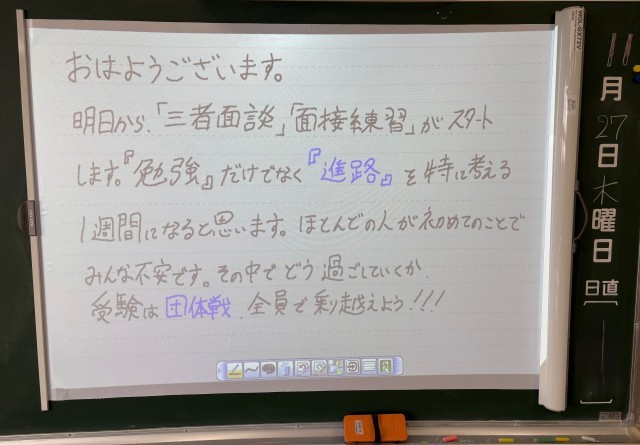 おはようございます。
明日から、「三者面談」「面接練習」がスタート
します。『勉強』だけでなく『進路』を特に考える
1週間になると思います。ほとんどの人が初めてのことで
みんな不安です。その中でどう過ごしていくか.
受験は団体戦.全員で乗り越えよう!!!
11月27日木曜日
日直